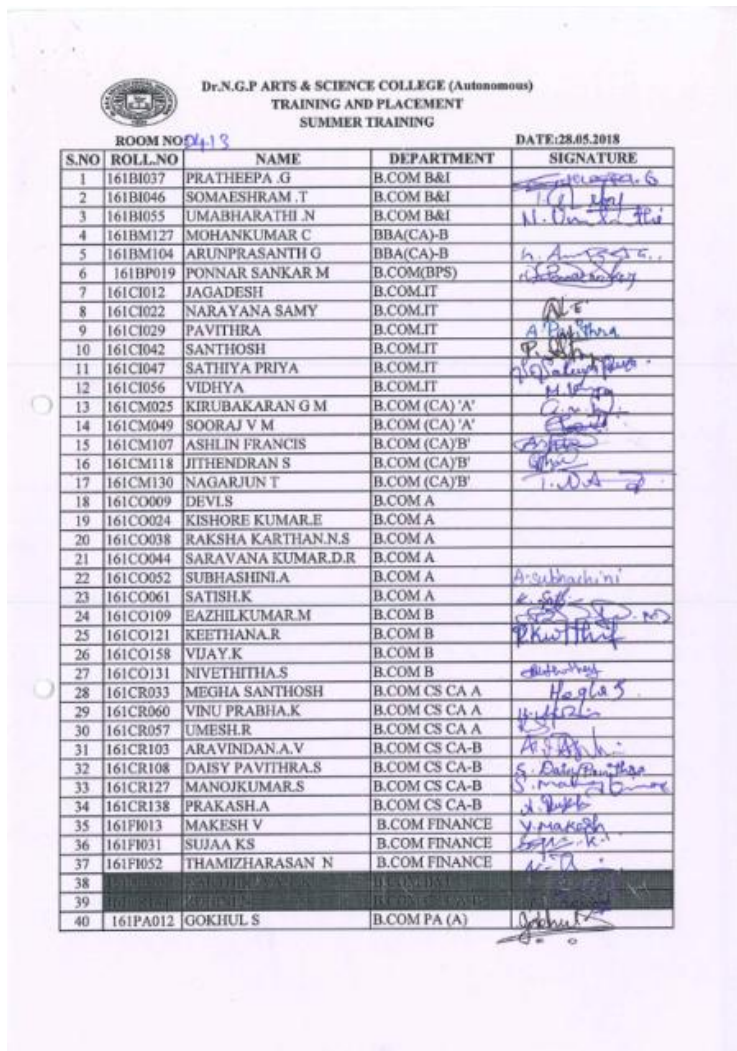 Dr.N.G.P ARTS & SCIENCE COLLEGE (Autonomous)
TRAINING AND PLACEMENT
SUMMER TRAINING
ROOM NO: DATE:28.05.2018
S.NO ROLL.NO NAME DEPARTMENT SIGNATURE
1 161BI037 PRATHEEPA .G B.COM B&I
2 161BI046 SOMAESHRAM .T B.COM B&I
3 161BI055 UMABHARATHI .N B.COM B&I
4 161BM127 MOHANKUMAR C BBA(CA)-B
5 161BM104 ARUNPRASANTH G BBA(CA)-B
6 161BP019 PONNAR SANKAR M B.COM(BPS)
7 161CI012 JAGADESH B.COM.IT
8 161CI022 NARAYANA SAMY B.COM.IT
9 161CI029 PAVITHRA B.COM.IT A. Pavithra
10 161CI042 SANTHOSH B.COM.IT
11 161CI047 SATHIYA PRIYA B.COM.IT
12 161CI056 VIDHYA B.COM.IT
13 161CM025 KIRUBAKARAN G M B.COM (CA) 'A'
14 161CM049 SOORAJ V M B.COM (CA) 'A'
15 161CM107 ASHLIN FRANCIS B.COM (CA)'B'
16 161CM118 JITHENDRAN S B.COM (CA)'B'
17 161CM130 NAGARJUN T B.COM (CA)'B'
18 161CO009 DEVI.S B.COM A
19 161CO024 KISHORE KUMAR.E B.COM A
20 161CO038 RAKSHA KARTHAN.N.S B.COM A
21 161CO044 SARAVANA KUMAR.D.R B.COM A
22 161CO052 SUBHASHINI.A B.COM A A.subhachini
23 161CO061 SATISH.K B.COM A
24 161CO109 EAZHILKUMAR.M B.COM B
25 161CO121 KEETHANA.R B.COM B
26 161CO158 VIJAY.K B.COM B
27 161CO131 NIVETHITHA.S B.COM B
28 161CR033 MEGHA SANTHOSH B.COM CS CA A Megha S
29 161CR060 VINU PRABHA.K B.COM CS CA A
30 161CR057 UMESH.R B.COM CS CA A
31 161CR103 ARAVINDAN.A.V B.COM CS CA-B
32 161CR108 DAISY PAVITHRA.S B.COM CS CA-B S. Daisy Pavithra
33 161CR127 MANOJKUMAR.S B.COM CS CA-B
34 161CR138 PRAKASH.A B.COM CS CA-B
35 161FI013 MAKESH V B.COM FINANCE V.Makesh
36 161FI031 SUJAA KS B.COM FINANCE
37 161FI052 THAMIZHARASAN N B.COM FINANCE
38
39
40 161PA012 GOKHUL S B.COM PA (A) Gokhul